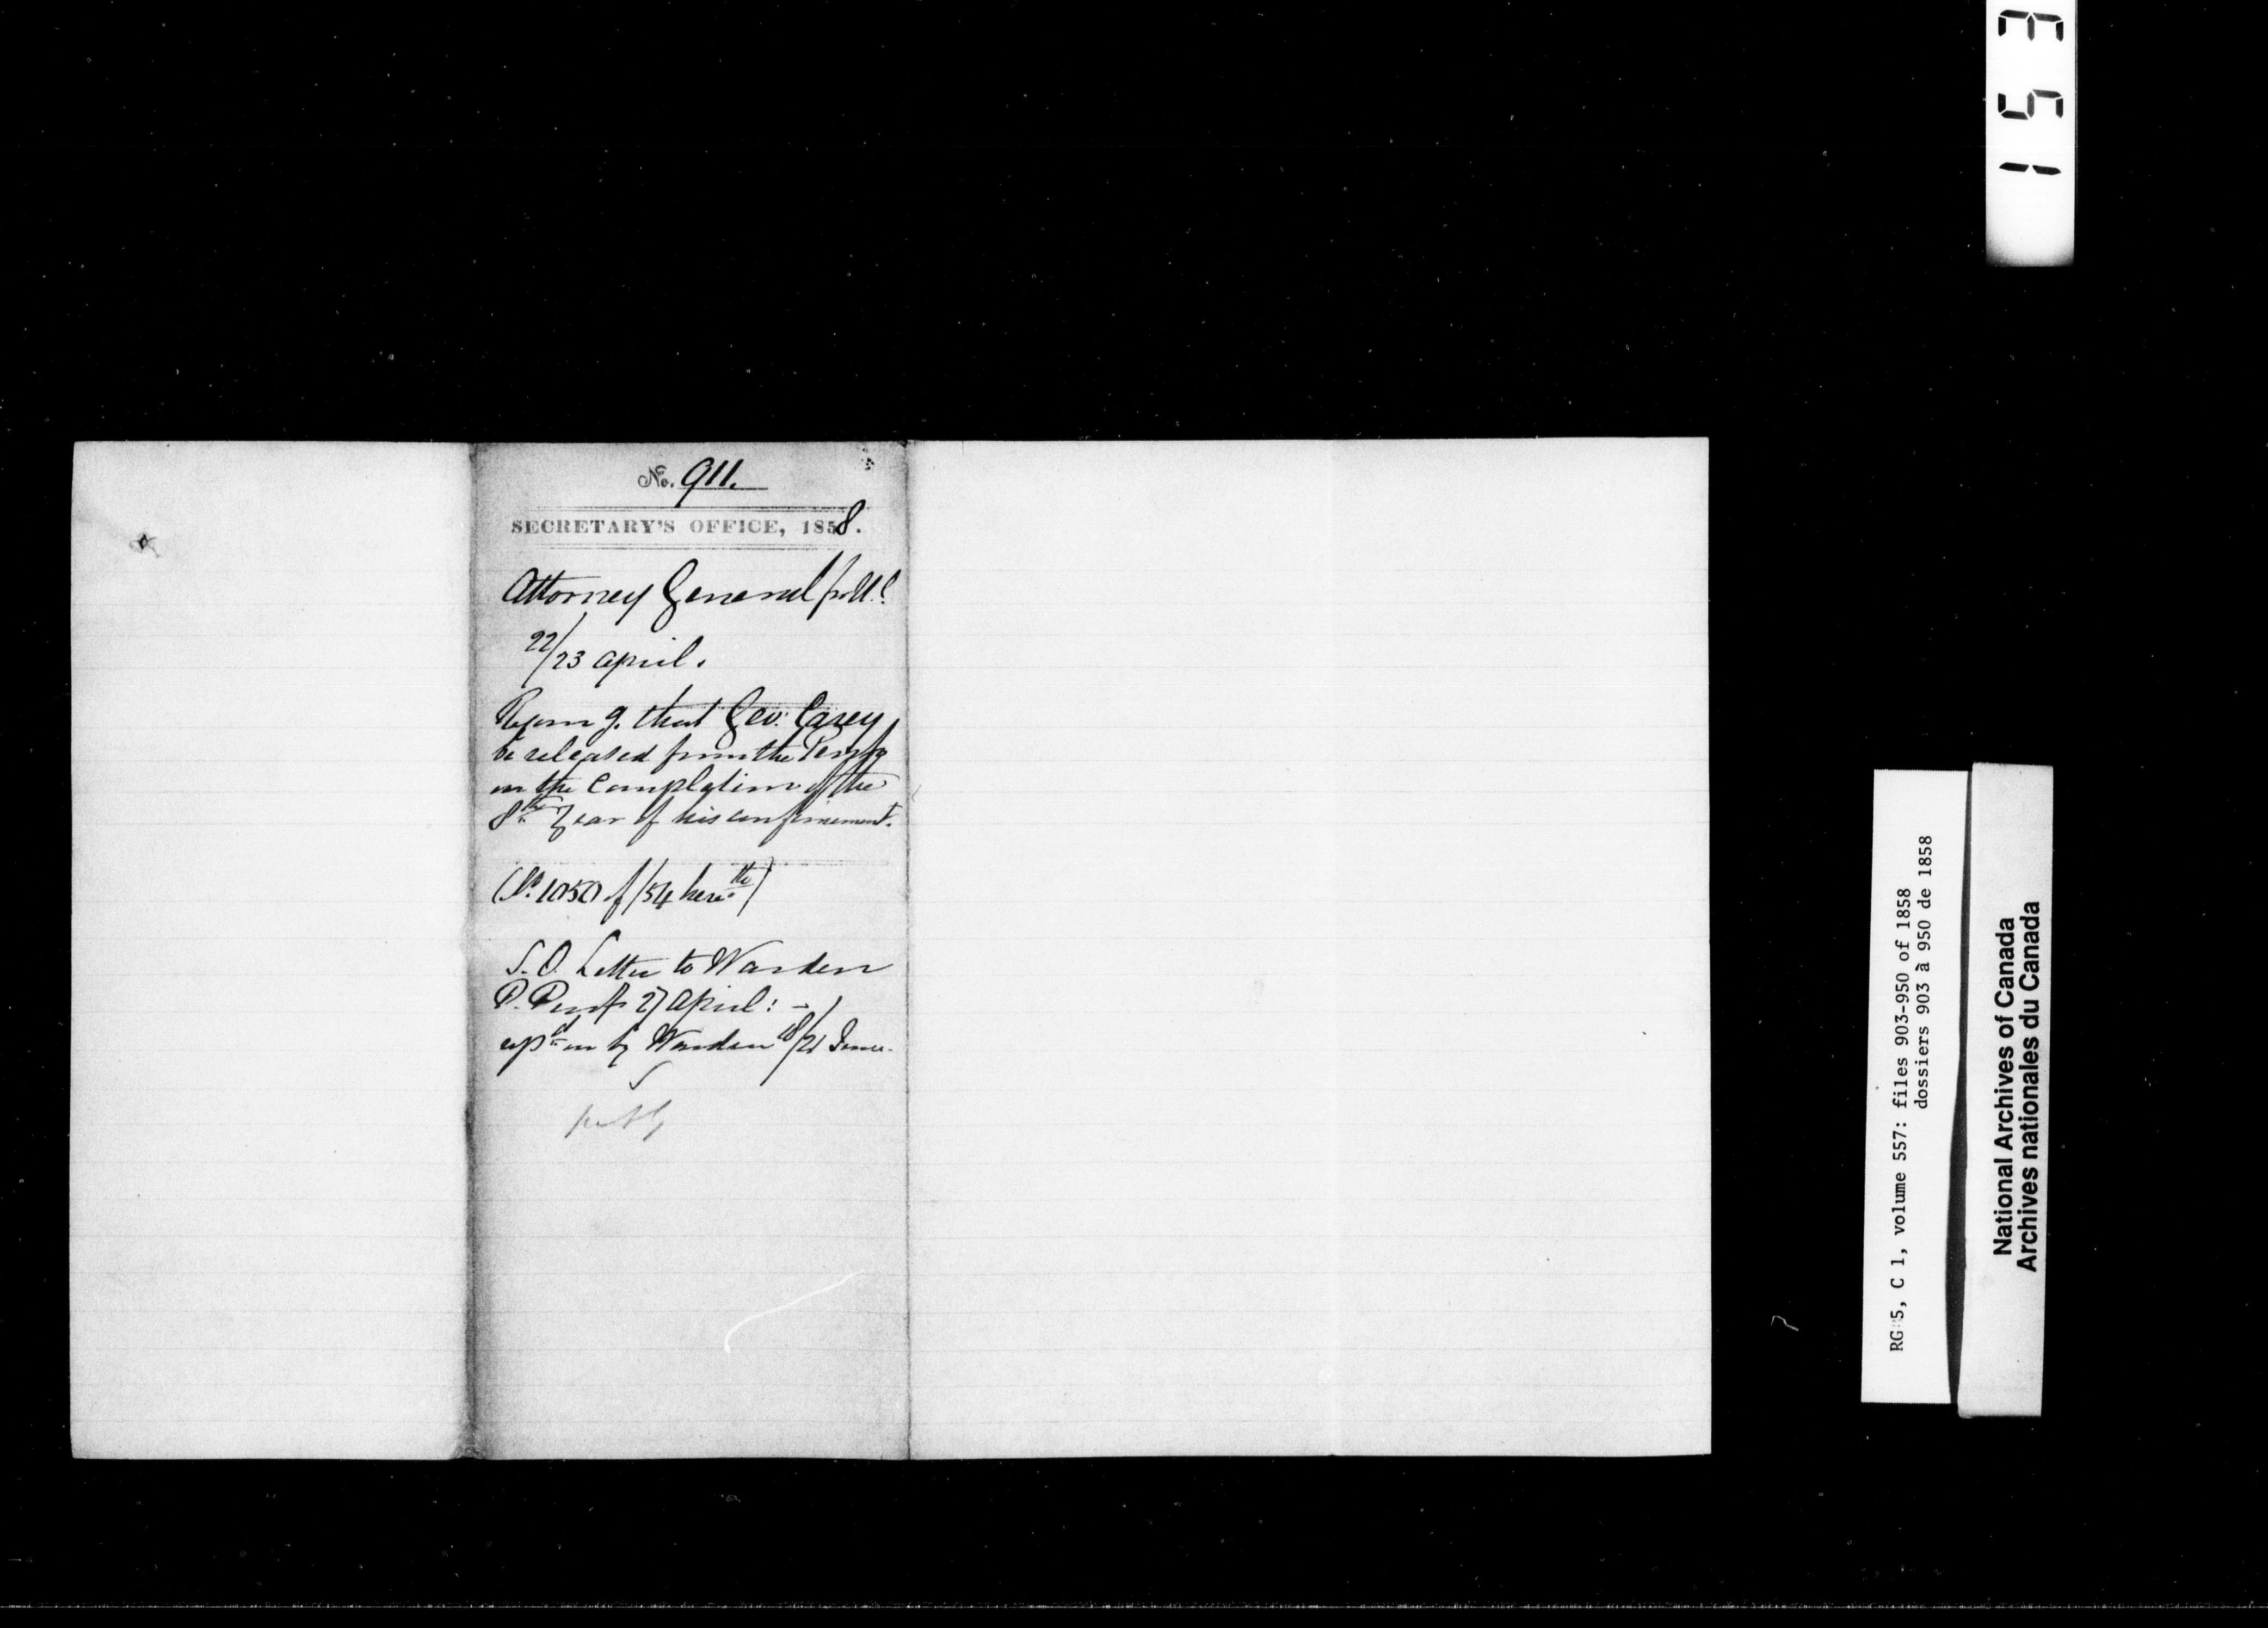 153
No. 911.
SECRETARY'S OFFICE, 1858.
Attorney General
22/23 April.
that Geo: Carey
be released from the
on the Completion of the
8th Year of his confinement.
1050 of /54
S. O. Letter to Warden
P. 27 April: -
on by Warden 18/21 June.
RG 5, C 1, volume 557: files 903-950 of 1858
dossiers 903 à 950 de 1858
National Archives of Canada
Archives nationales du Canada